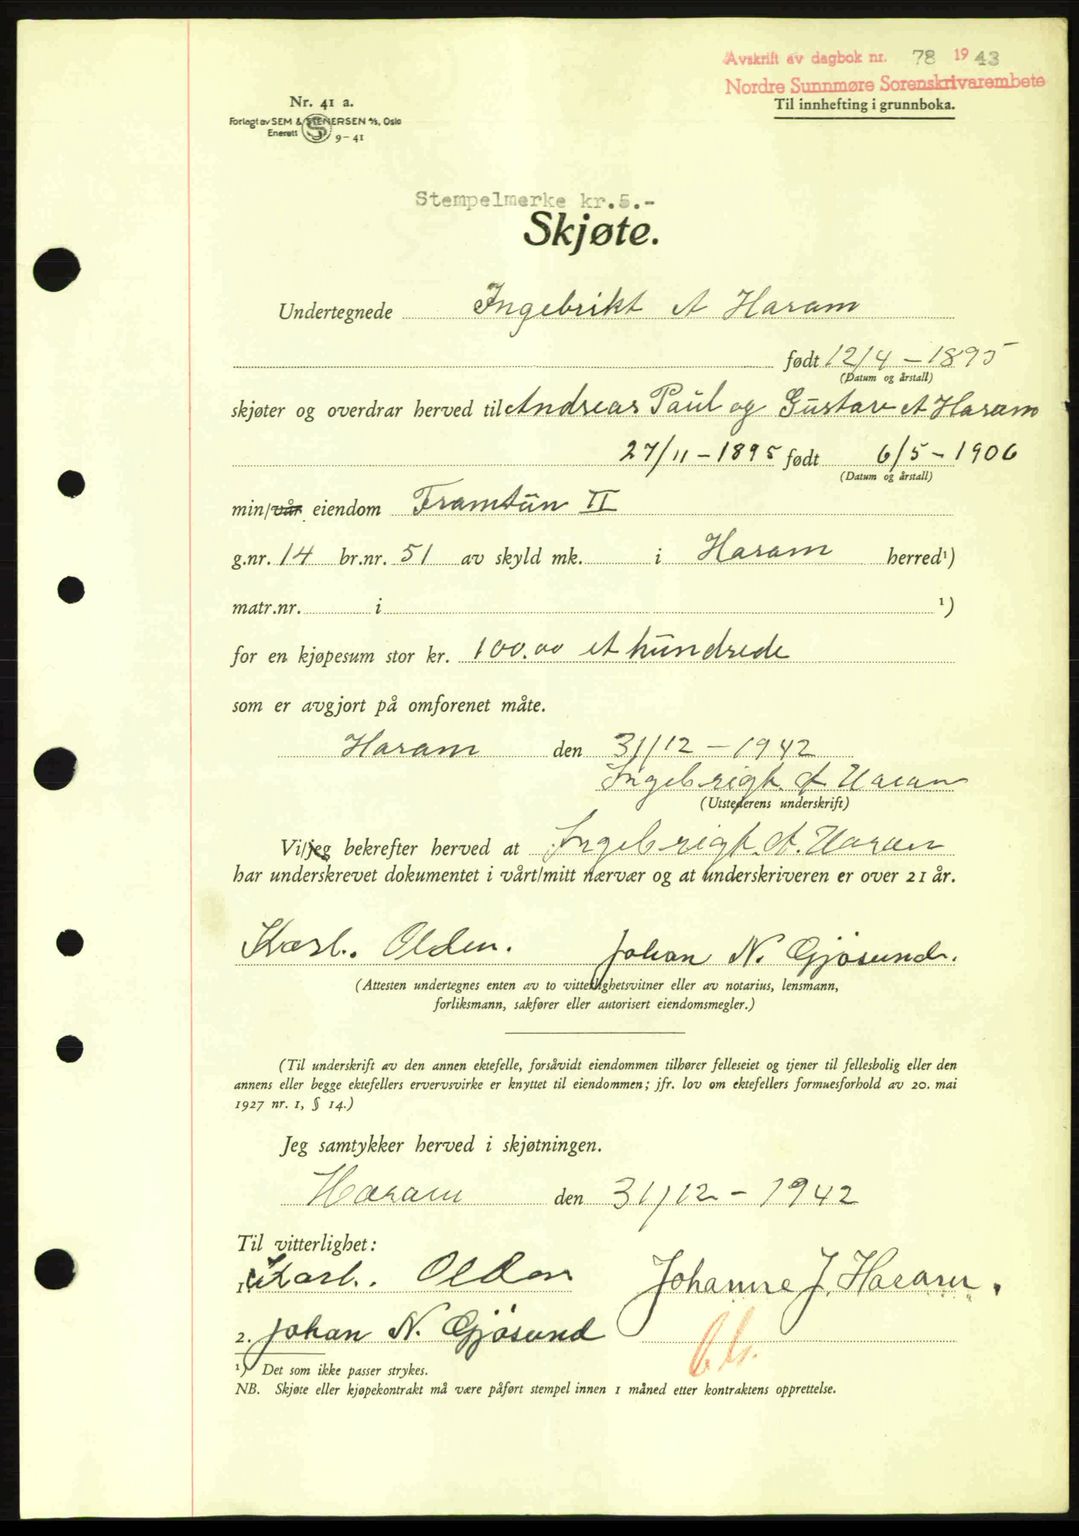 Avskrift av dagbok nr. 78 1943
Nordre Sunnmøre Sorenskrivarembete
Til innhefting i grunnboka.
Nr. 41 a.
Forlagt av SEM & STENERSEN A/S, Oslo
Enerett 9-41
Stempelmerke kr.5.-
Skjøte.
Undertegnede Ingebrikt A Haram
født 12/4 - 1895
(Datum og årstall)
skjøter og overdrar herved til Andreas Paul og Gustav A Haram
27/11 - 1895 født 6/5 - 1906
(Datum og årstall)
min/vår eiendom Framtün II
g.nr. 14 br.nr. 51 av skyld mk. i Haram herred¹)
matr.nr. i ¹)
for en kjøpesum stor kr. 100.00 et hündrede
som er avgjort på omforenet måte.
Haram den 31/12 - 1942
Ingebrigt A Haram
(Utstederens underskrift)
Vi/jeg bekrefter herved at Ingebrigt A. Haram
har underskrevet dokumentet i vårt/mitt nærvær og at underskriveren er over 21 år.
Karl. Olden. Johan N. Gjøsund.
(Attesten undertegnes enten av to vitterlighetsvitner eller av notarius, lensmann,
forliksmann, sakfører eller autorisert eiendomsmegler.)
(Til underskrift av den annen ektefelle, forsåvidt eiendommen tilhører felleseiet og tjener til fellesbolig eller den
annens eller begge ektefellers ervervsvirke er knyttet til eiendommen; jfr. lov om ektefellers formuesforhold av 20. mai
1927 nr. 1, § 14.)
Jeg samtykker herved i skjøtningen.
Haram den 31/12 - 1942
Til vitterlighet:
1. Karl. Olden Johanne J. Haram.
2. Johan N. Gjøsund
¹) Det som ikke passer strykes.
NB. Skjøte eller kjøpekontrakt må være påført stempel innen 1 måned etter kontraktens opprettelse.